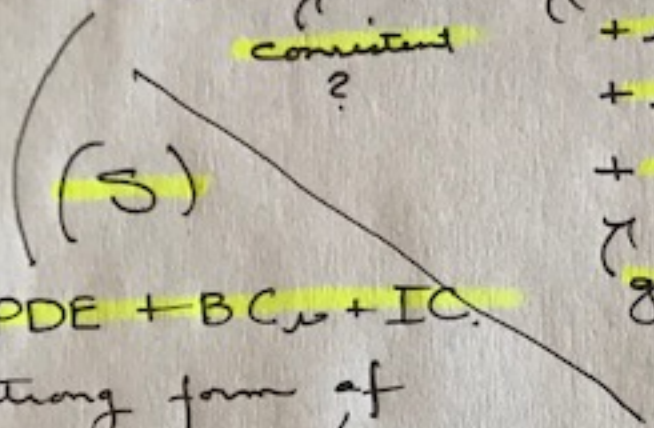 consistent
?
+
+
(S)
+
PDE + BCs + IC.
g
trong form of